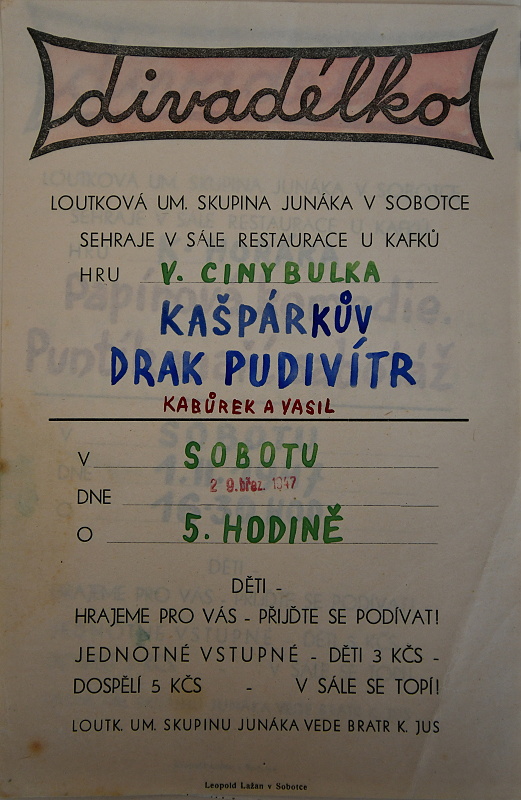 divadélko
LOUTKOVÁ UM. SKUPINA JUNÁKA V SOBOTCE
SEHRAJE V SÁLE RESTAURACE U KAFKŮ
HRU V. CINYBULKA
KAŠPÁRKŮV
DRAK PUDIVÍTR
KABŮREK A VASIL
V SOBOTU
DNE 29. břez. 1947
O 5. HODINĚ
DĚTI -
HRAJEME PRO VÁS - PŘIJĎTE SE PODÍVAT!
JEDNOTNÉ VSTUPNÉ - DĚTI 3 KČS -
DOSPĚLÍ 5 KČS - V SÁLE SE TOPÍ!
LOUTK. UM. SKUPINU JUNÁKA VEDE BRATR K. JUS
Leopold Lažan v Sobotce